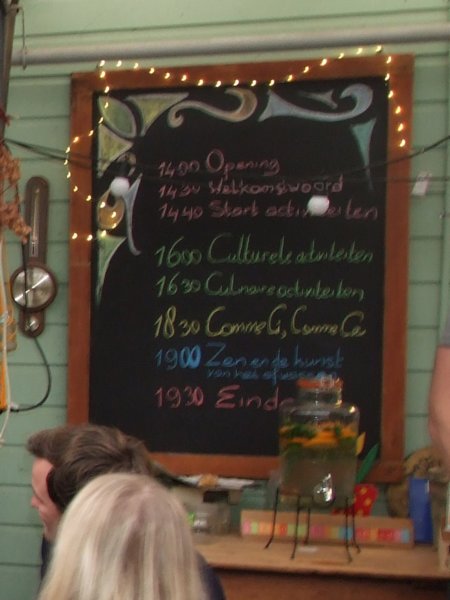 1400 Opening
1430 Welkomstwoord
1440 Start activiteiten
1600 Culturele activiteiten
1630 Culinaire activiteiten
1830 Comme Ci, Comme Ca
1900 Zen en de kunst
van het afwassen
1930 Einde